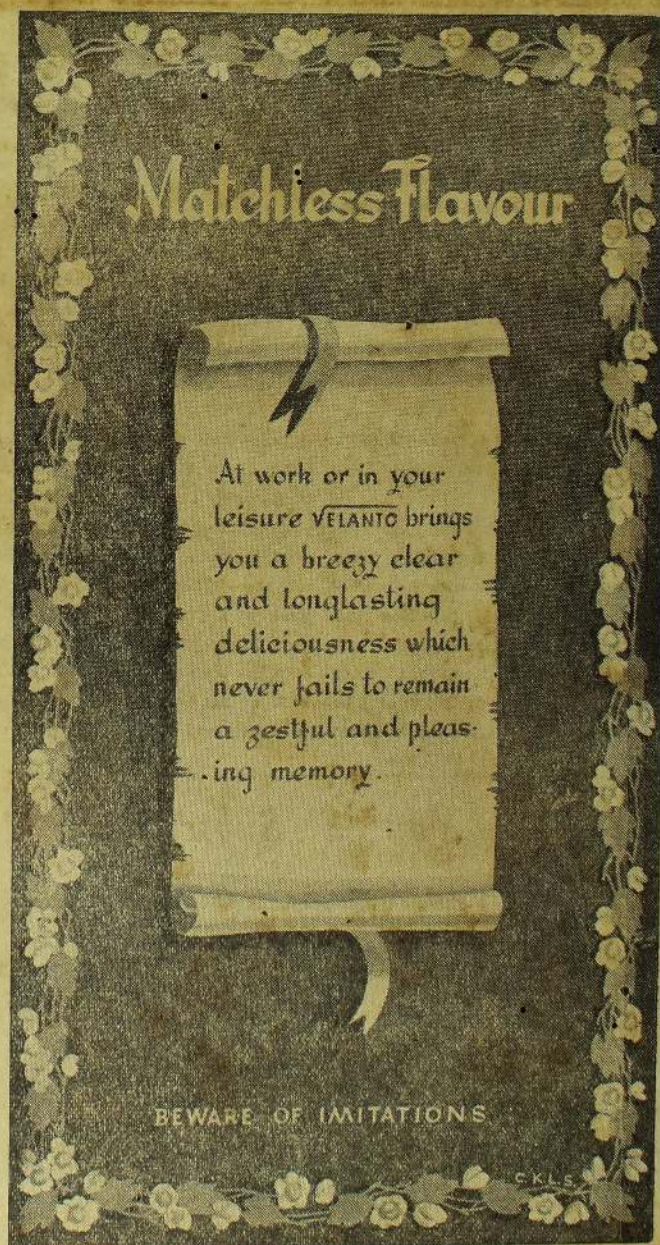 Matchless Flavour
At work or in your
leisure VELANTO brings
you a breezy clear
and longlasting
deliciousness which
never fails to remain
a zestful and pleas-
ing memory.
BEWARE OF IMITATIONS
C.K.L.S.